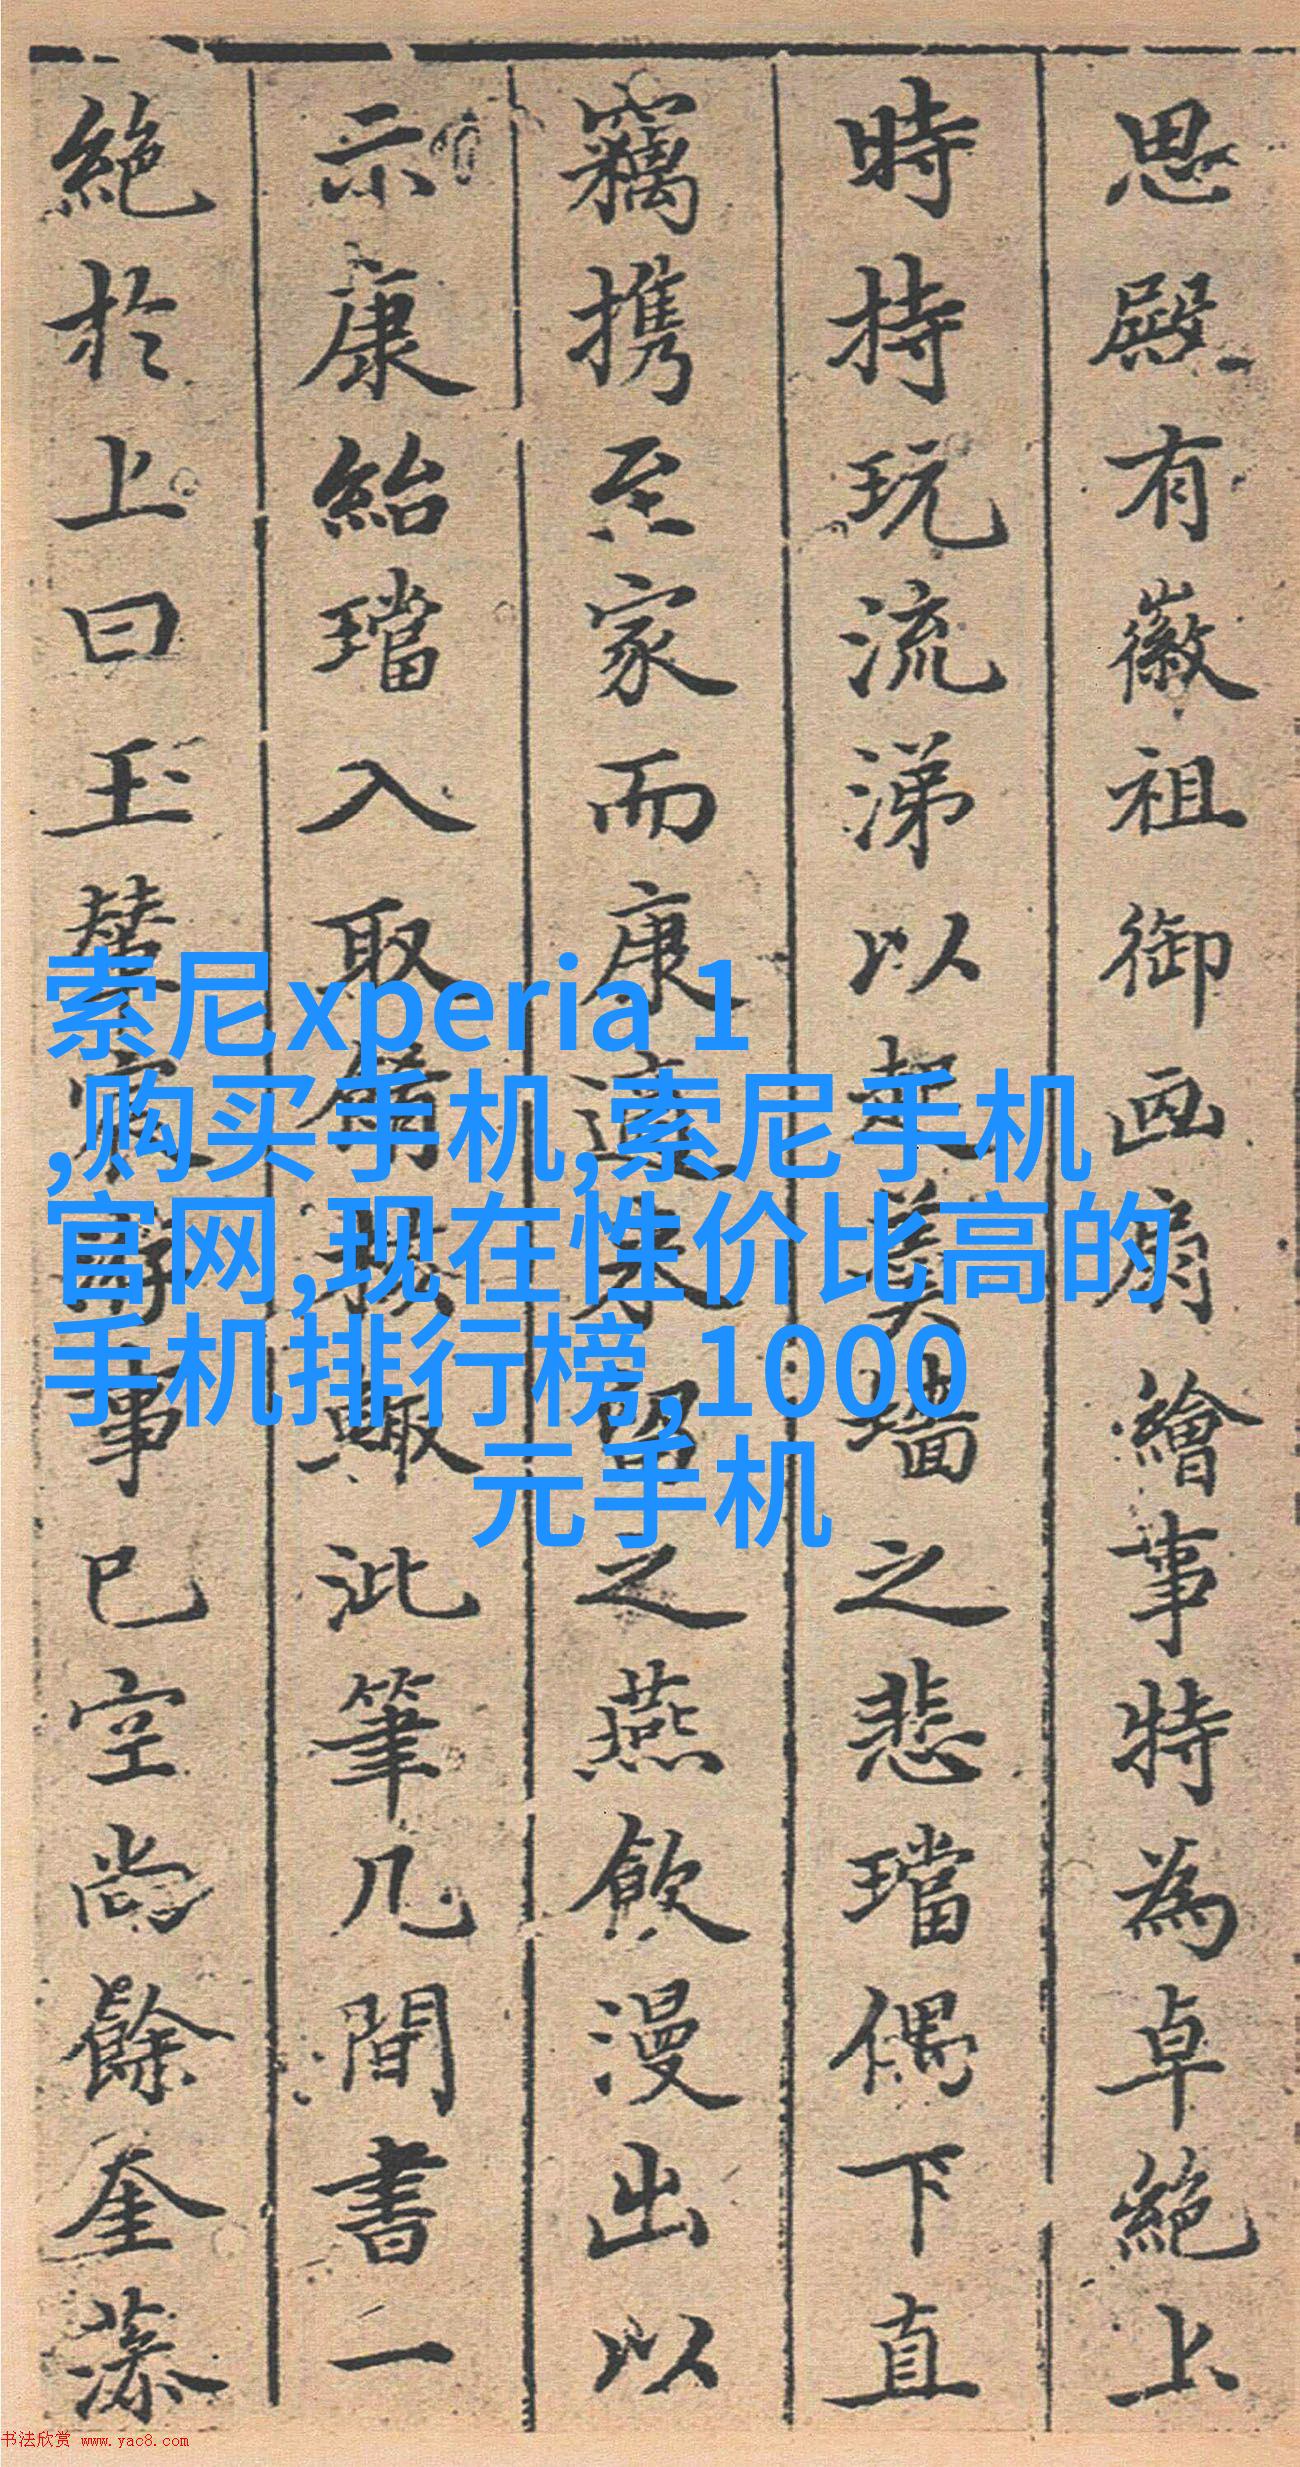 思殿有徽祖御画扇繪事特為卓絶上
時持玩流涕以起羹墙之悲璫偶下直
竊携至家而康適来留之燕飲漫出以
示康紿璫入取餚核輙泚筆几間書一
絶於上曰玉輦宸游事已空尚餘奎藻
索尼xperia 1
,购买手机,索尼手机
官网,现在性价比高的
手机排行榜,1000
元手机
书法欣赏 www.yac8.com